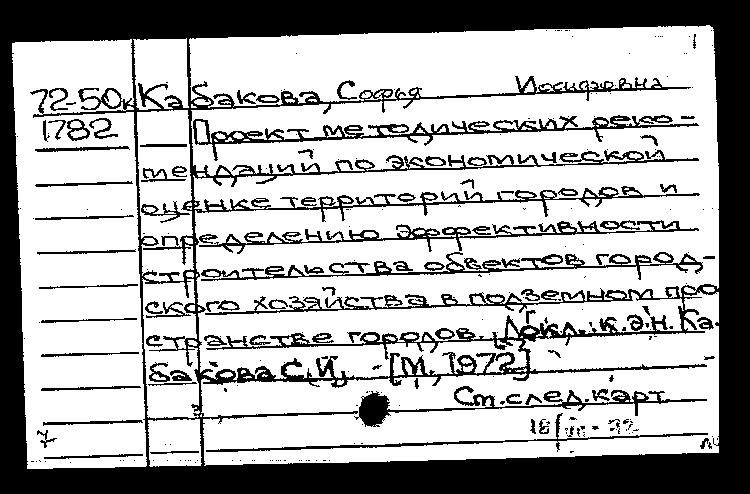 1
72-50к Кабакова, Софья Иосифовна
1782 Проект методических реко-
мендаций по экономической
оценке территорий городов и
определению эффективности
строительства объектов город-
ского хозяйства в подземном про
странстве городов. [Докл.: к.э.н. Ка-
бакова С.И. - [М., 1972].
Ст. след. карт
18/VII-72
7